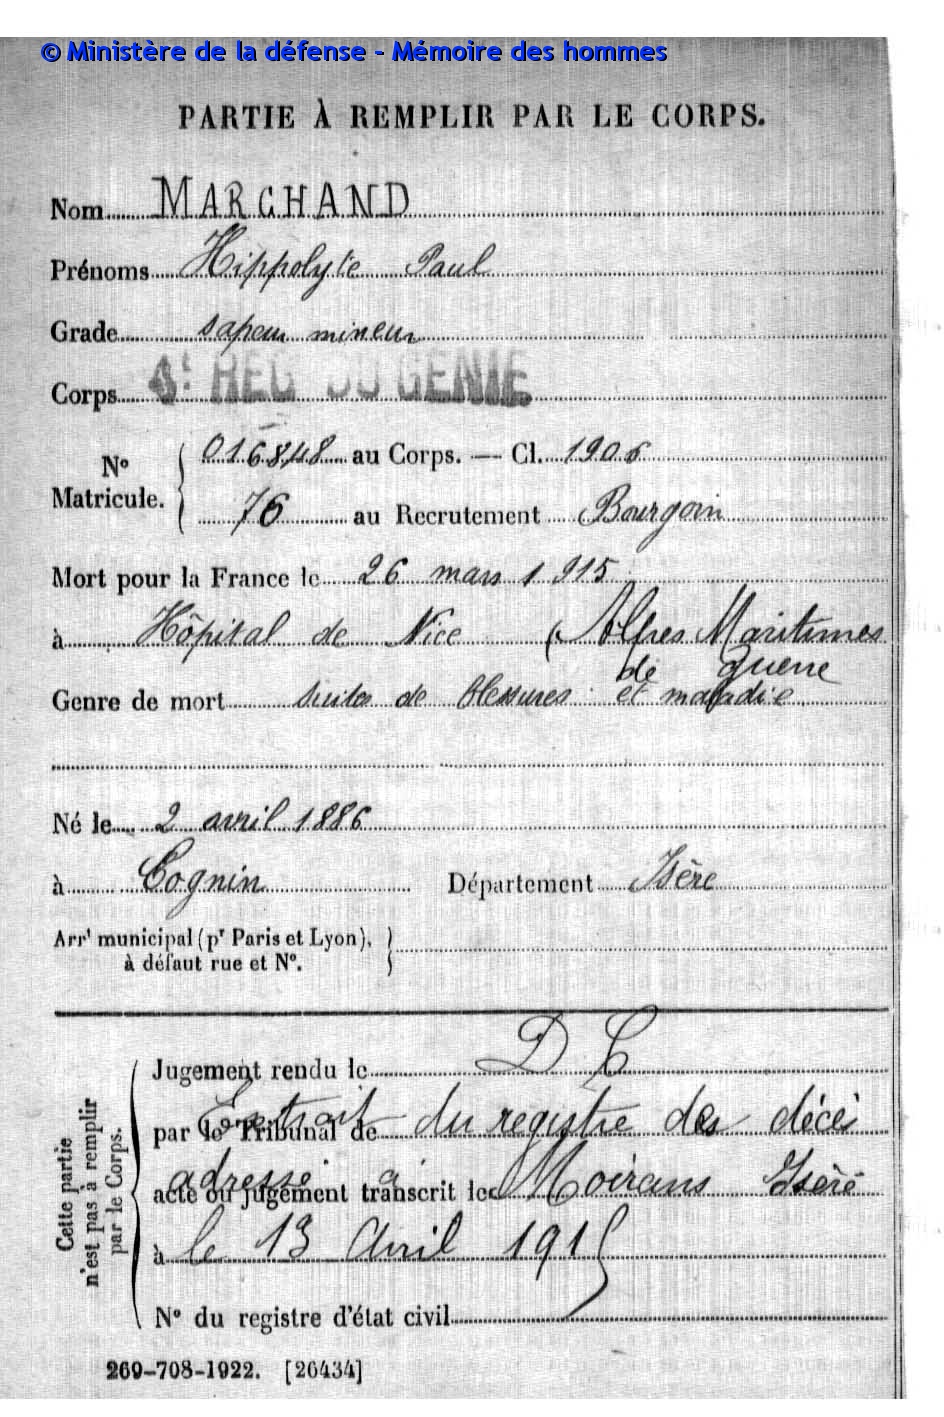 © Ministère de la défense - Mémoire des hommes
PARTIE À REMPLIR PAR LE CORPS.
Nom MARCHAND
Prénoms Hippolyte Paul
Grade sapeur mineur
Corps 4e REG DU GENIE
No Matricule. 016848 au Corps. — Cl. 1906
76 au Recrutement Bourgoin
Mort pour la France le 26 mars 1915
à Hôpital de Nice (Alpes Maritimes
de guerre
Genre de mort suites de blessures et maladie
Né le 2 avril 1886
à Cognin Département Isère
Arrt municipal (pr Paris et Lyon),
à défaut rue et No.
Cette partie
n'est pas à remplir
par le Corps.
Jugement rendu le D C
Extrait du registre des décès
par le Tribunal de
adressé à Moirans Isère
acte ou jugement transcrit le
à le 13 Avril 1915
No du registre d'état civil
269-708-1922. [26434]